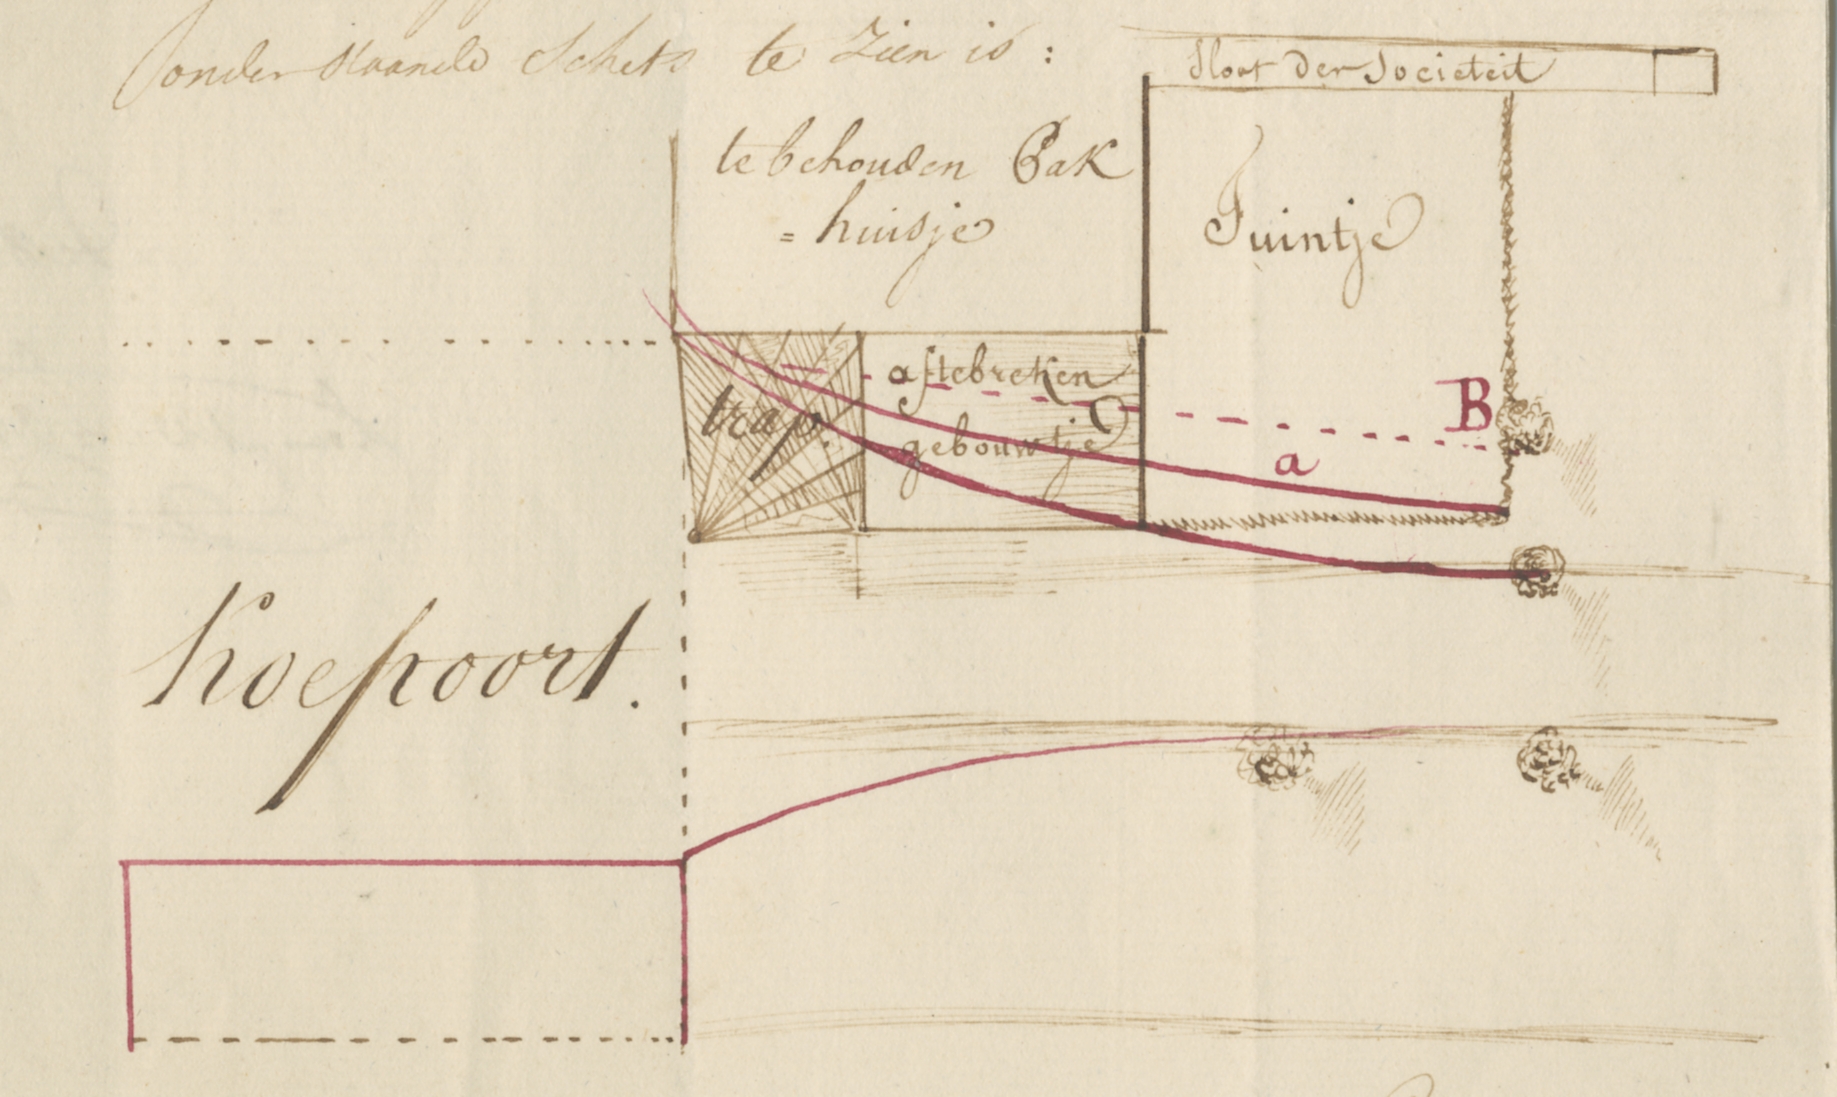 onderstaande Schets te Zien is:
Sloot der Societeit
te behouden Pak
=huisje
Tuintje
aftebreken
gebouwtje
trap.
B
a
Koepoort.